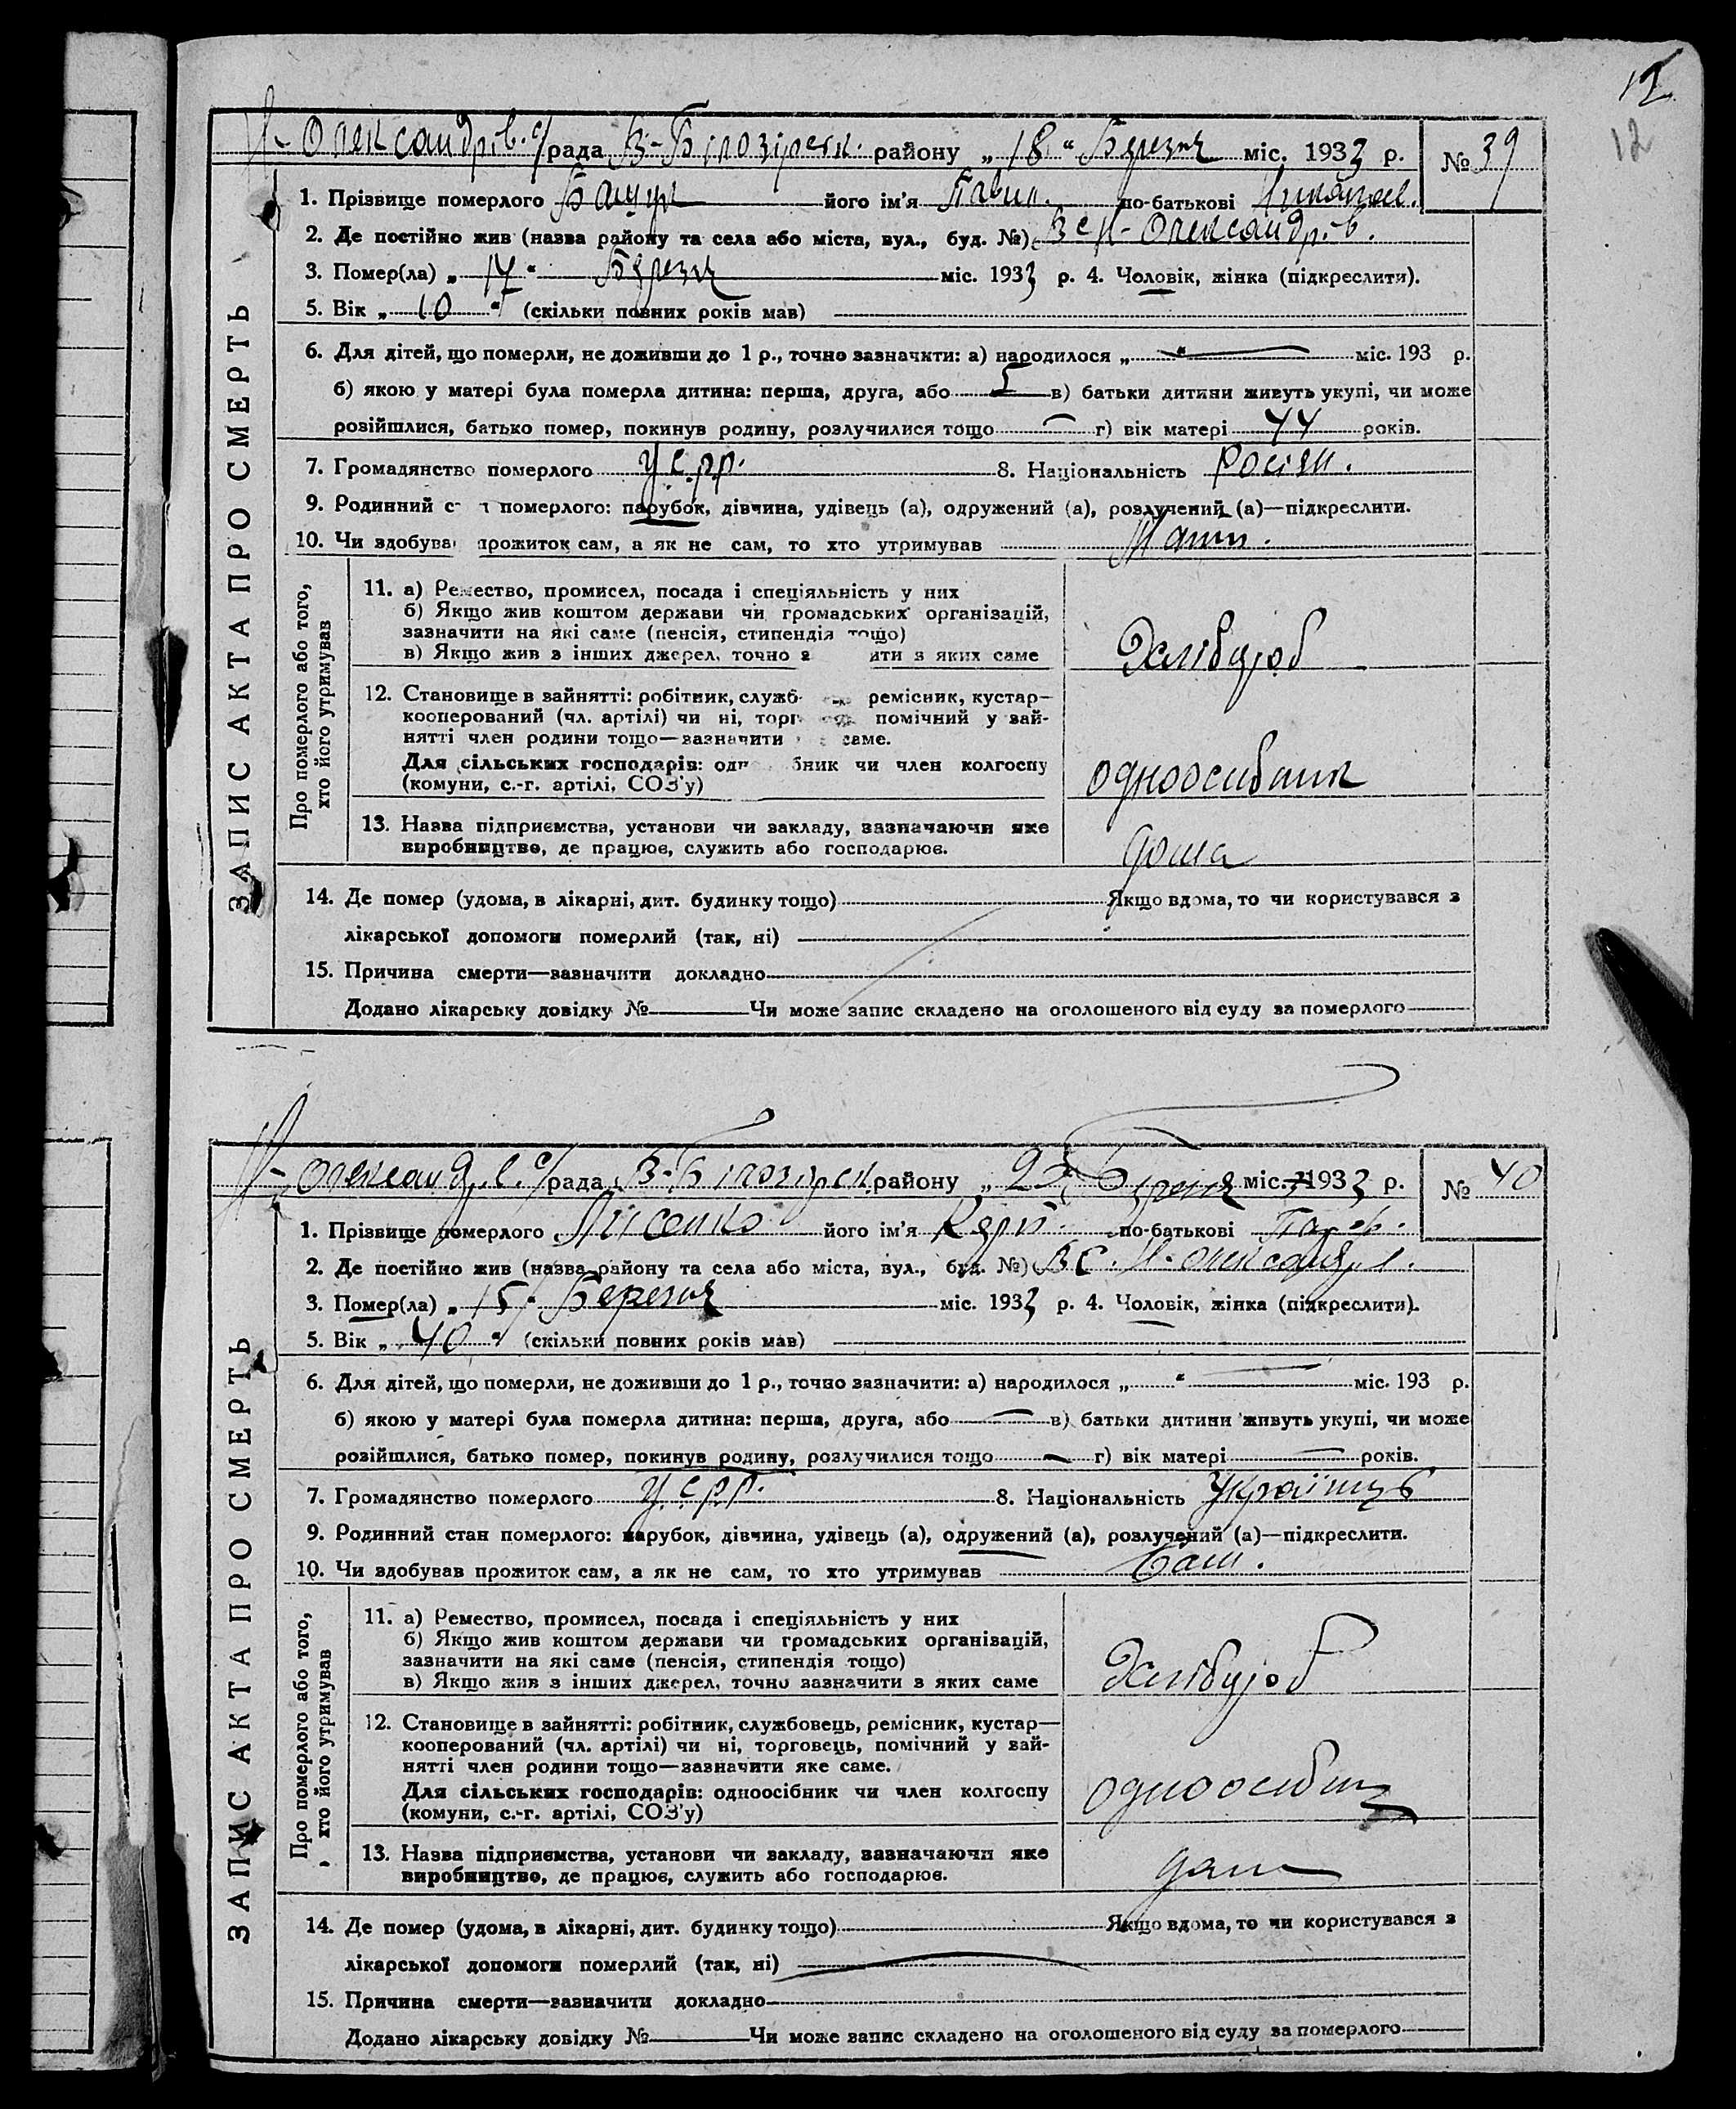 12
12
Н-Олександрів. с/рада В-Білозірськ. району „18“ Березня міс. 1933 р. № 39
ЗАПИС АКТА ПРО СМЕРТЬ
1. Прізвище померлого його ім'я Павил. по-батькові
2. Де постійно жив (назва району та села або міста, вул., буд. №) В с Н-Олександрів.
3. Помер(ла) „17“ Березня міс. 1933 р. 4. Чоловік, жінка (підкреслити).
5. Вік „10“ (скільки повних років мав)
6. Для дітей, що померли, не доживши до 1 р., точно зазначити: а) народилося „ “ міс. 193 р.
б) якою у матері була померла дитина: перша, друга, або 5 в) батьки дитини живуть укупі, чи може
розійшлися, батько помер, покинув родину, розлучилися тощо г) вік матері 44 років.
7. Громадянство померлого УСРР. 8. Національність Росіян.
9. Родинний с н померлого: парубок, дівчина, удівець (а), одружений (а), розлучений (а)—підкреслити.
10. Чи здобува прожиток сам, а як не сам, то хто утримував Мати.
Про померлого або того,
хто його утримував
11. а) Ремество, промисел, посада і спеціяльність у них
б) Якщо жив коштом держави чи громадських організацій,
зазначити на які саме (пенсія, стипендія тощо)
в) Якщо жив з інших джерел, точно з ити з яких саме
Хлібороб
12. Становище в зайнятті: робітник, служб ремісник, кустар—
кооперований (чл. артілі) чи ні, торг помічний у зай-
нятті член родини тощо—зазначити саме.
Для сільських господарів: одн бник чи член колгоспу
(комуни, с.-г. артілі, СОЗ'у)
одноосибник
13. Назва підприємства, установи чи закладу, зазначаючи яке
виробництво, де працює, служить або господарює.
дома
14. Де помер (удома, в лікарні, дит. будинку тощо) Якщо вдома, то чи користувався з
лікарської допомоги померлий (так, ні)
15. Причина смерти—зазначити докладно
Додано лікарську довідку № Чи може запис складено на оголошеного від суду за померлого
Н-Олександ.в. с/рада В-Білозірськ. району „23“ Березня міс. 1933 р. № 40
ЗАПИС АКТА ПРО СМЕРТЬ
1. Прізвище померлого Лисенко його ім'я по-батькові
2. Де постійно жив (назва району та села або міста, вул., буд. №) В с. Н-Олександ.в.
3. Помер(ла) „15“ Березня міс. 1933 р. 4. Чоловік, жінка (підкреслити).
5. Вік „40“ (скільки повних років мав)
6. Для дітей, що померли, не доживши до 1 р., точно зазначити: а) народилося „ “ міс. 193 р.
б) якою у матері була померла дитина: перша, друга, або в) батьки дитини живуть укупі, чи може
розійшлися, батько помер, покинув родину, розлучилися тощо г) вік матері років.
7. Громадянство померлого УСРР. 8. Національність Українць
9. Родинний стан померлого: парубок, дівчина, удівець (а), одружений (а), розлучений (а)—підкреслити.
10. Чи здобував прожиток сам, а як не сам, то хто утримував Сам.
Про померлого або того,
хто його утримував
11. а) Ремество, промисел, посада і спеціяльність у них
б) Якщо жив коштом держави чи громадських організацій,
зазначити на які саме (пенсія, стипендія тощо)
в) Якщо жив з інших джерел, точно зазначити з яких саме
Хлібороб
12. Становище в зайнятті: робітник, службовець, ремісник, кустар—
кооперований (чл. артілі) чи ні, торговець, помічний у зай-
нятті член родини тощо—зазначити яке саме.
Для сільських господарів: одноосібник чи член колгоспу
(комуни, с.-г. артілі, СОЗ'у)
одноосибн
13. Назва підприємства, установи чи закладу, зазначаючи яке
виробництво, де працює, служить або господарює.
дома
14. Де помер (удома, в лікарні, дит. будинку тощо) Якщо вдома, то чи користувався з
лікарської допомоги померлий (так, ні)
15. Причина смерти—зазначити докладно
Додано лікарську довідку № Чи може запис складено на оголошеного від суду за померлого